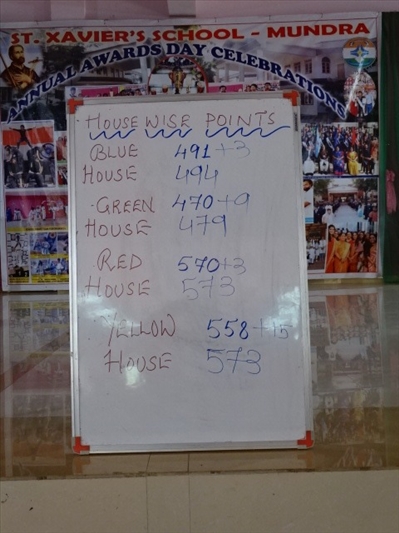 ST. XAVIER'S SCHOOL - MUNDRA
ANNUAL AWARDS DAY CELEBRATIONS
HOUSE WISE POINTS
BLUE 491+3
HOUSE 494
GREEN 470+9
HOUSE 479
RED 570+3
HOUSE 573
YELLOW 558+15
HOUSE 573